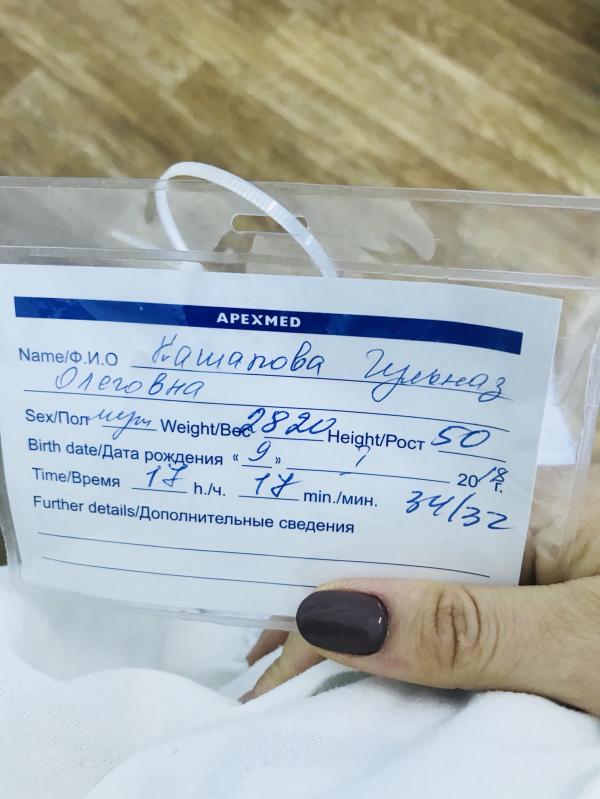 APEXMED
Name/Ф.И.О Кашапова Гульназ
Олеговна
Sex/Пол муж Weight/Вес 2820 Height/Рост 50
Birth date/Дата рождения « 9 » 2018 г.
Time/Время 17 h./ч. 17 min./мин. 34/32
Further details/Дополнительные сведения